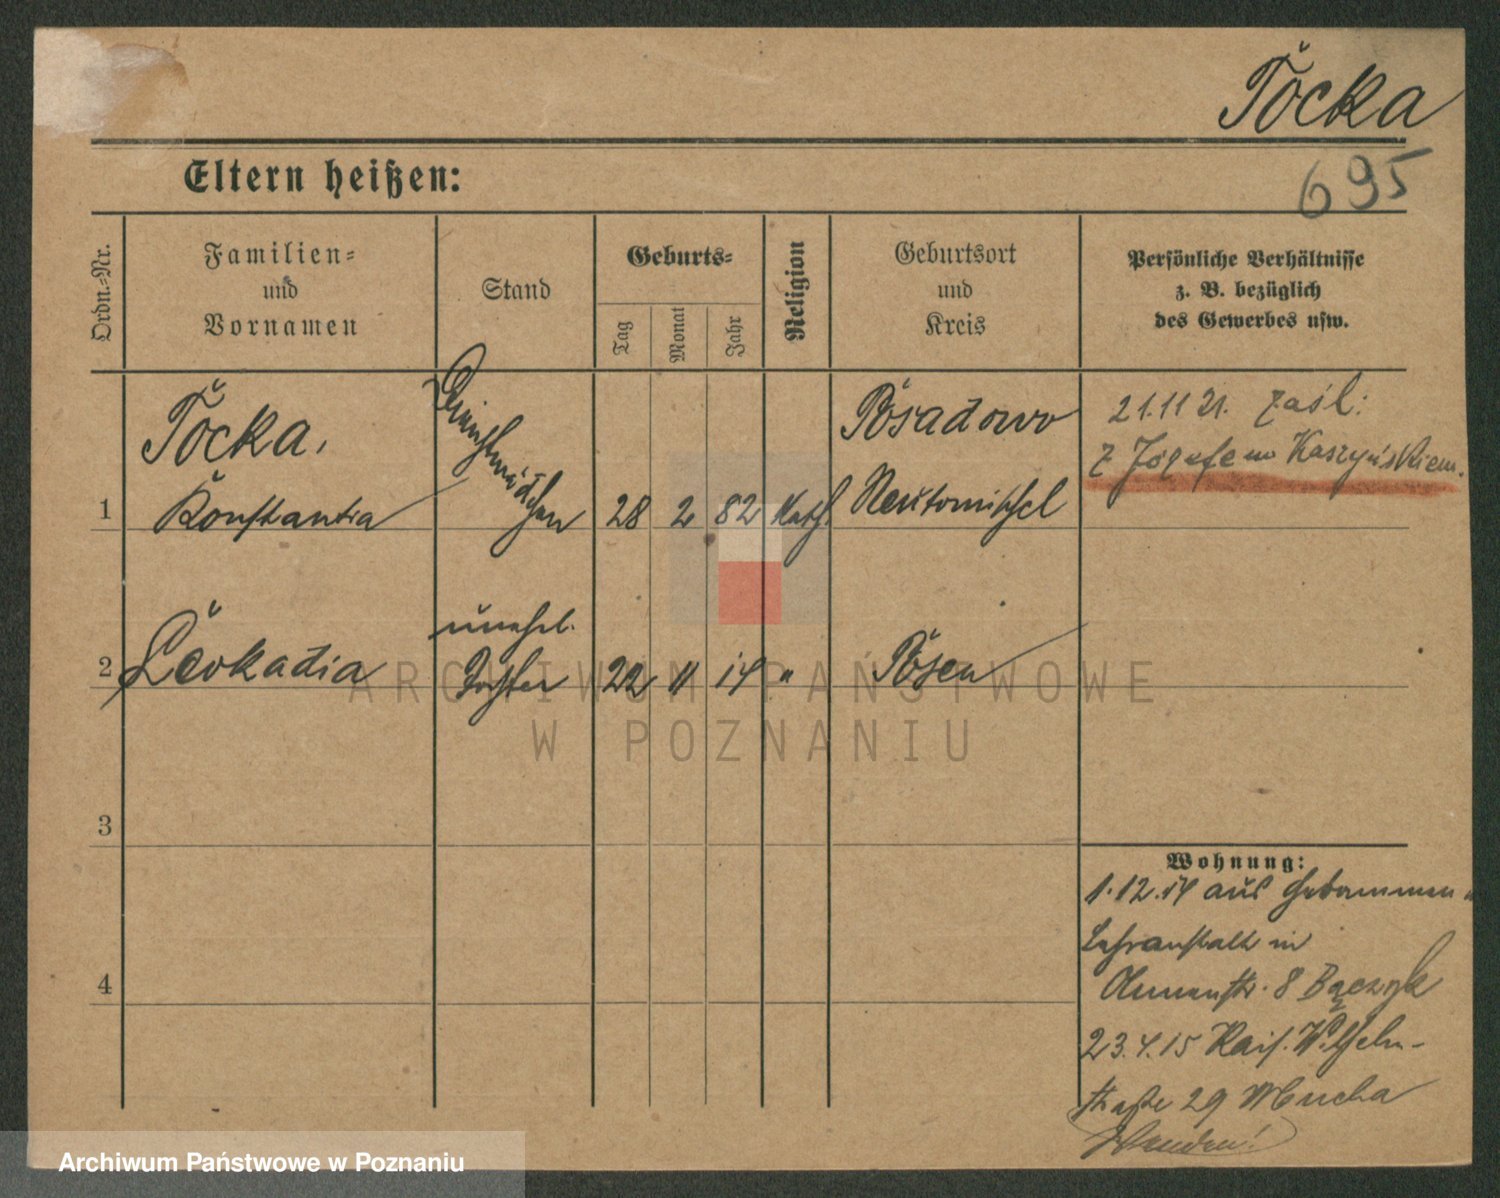 Točka
695
Eltern heißen:
Ordn.-Nr.
Familien-
und
Vornamen
Stand
Geburts-
Tag
Monat
Jahr
Religion
Geburtsort
und
Kreis
Persönliche Verhältnisse
z. B. bezüglich
des Gewerbes usw.
1
Točka,
Konstantia
Dienstmädchen
28 2 82 Kath.
Posadowo
Neutomischel
21.11 21. zaśl:
z Józefem Kaszyńskiem.
2
Leokadia
unehel.
Tochter
22 11 14 "
Posen
3
4
Wohnung:
1.12.14 aus Hebammen
Lehranstalt in
8 Bączyk
23.4.15 Kais. Wilhelm-
straße 29 Mucha
Wenden!
ARCHIWUM PAŃSTWOWE
W POZNANIU
Archiwum Państwowe w Poznaniu